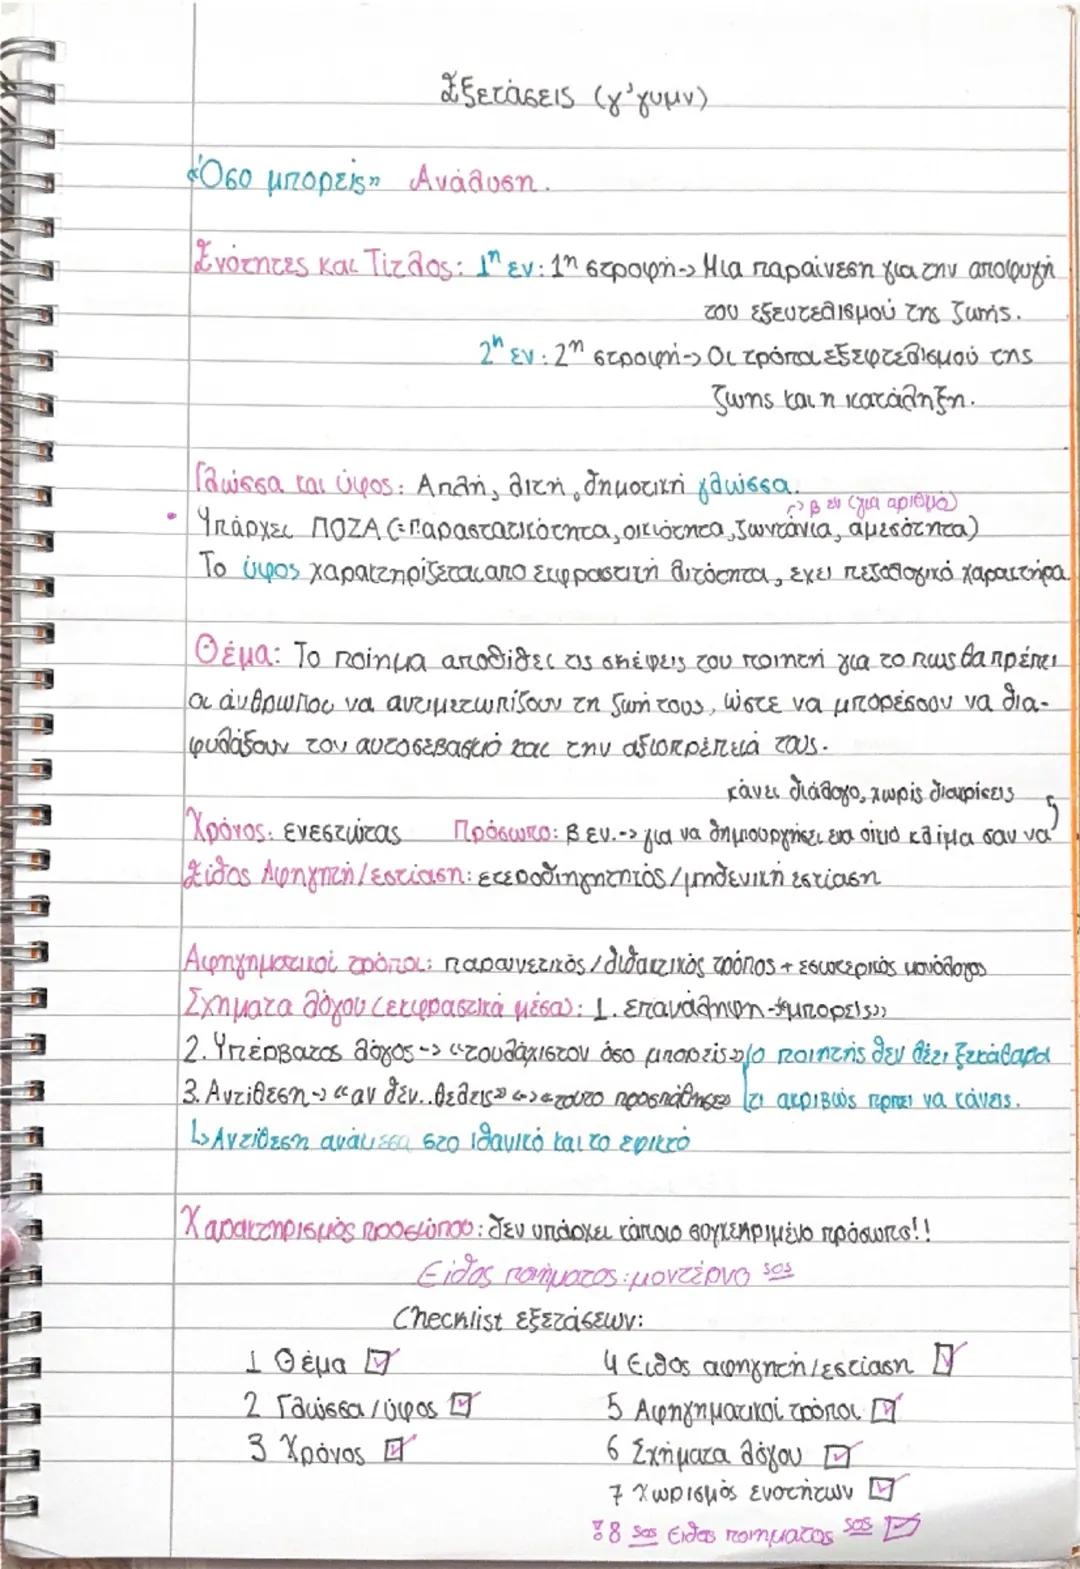 Εξετάσεις (γ'γυμν)
«Όσο μπορείς» Ανάλυση.
Ενότητες και Τίτλος: 1η εν: 1η στροφή-> Μια παραίνεση για την αποφυγή
του εξευτελισμού της ζωής.
2η εν: 2η στροφή-> Οι τρόποι εξεφτελισμού της
ζωής και η κατάληξη.
Γλώσσα και ύφος: Απλή, λιτή, δημοτική γλώσσα.
-> β εν (για αριθμό)
• Υπάρχει ΠΟΖΑ (=Παραστατικότητα, οικιότητα, ζωντάνια, αμεσότητα)
Το ύφος χαρακτηρίζεται από εκφραστική λιτότητα, έχει πεζολογικό χαρακτήρα
Θέμα: Το ποίημα αποδίδει τις σκέψεις του ποιητή για το πως θα πρέπει
οι άνθρωποι να αντιμετωπίζουν τη ζωή τους, ώστε να μπορέσουν να δια-
φυλάξουν τον αυτοσεβασμό και την αξιοπρέπειά τους.
κάνει διάλογο, χωρίς διακρίσεις
Χρόνος: ενεστώτας Πρόσωπο: β εν.-> για να δημιουργήσει ένα οικιό κλίμα σαν να
Είδος Αφηγητή/εστίαση: ετεροδιηγητητός/μηδενική εστίαση
Αφηγηματικοί τρόποι: παραινετικός/διδακτικός τρόπος + εσωτερικός μονόλογος
Σχήματα λόγου (εκφραστικά μέσα): 1. επανάληψη-> «μπορείς»
2. Υπέρβατος λόγος-> «τουλάχιστον όσο μπορείς» /ο ποιητής δεν λέει ξεκάθαρα
3. Αντίθεση-> «αν δεν..θέλεις» <-> «τούτο προσπάθησε» τι ακριβώς πρέπει να κάνεις.
↳ Αντίθεση ανάμεσα στο ιδανικό και το εφικτό
Χαρακτηρισμός προσώπου: δεν υπάρχει κάποιο συγκεκριμένο πρόσωπο!!
Είδος ποιήματος: μοντέρνο sos
Checklist εξετάσεων:
1 Θέμα ☑ 4 Ειδος αφηγητή/εστίαση ☑
2 Γλώσσα/ύφος ☑ 5 Αφηγηματικοί τρόποι ☑
3 Χρόνος ☑ 6 Σχήματα λόγου ☑
7 Χωρισμός ενοτήτων ☑
8 sos Ειδος ποιήματος sos ☑